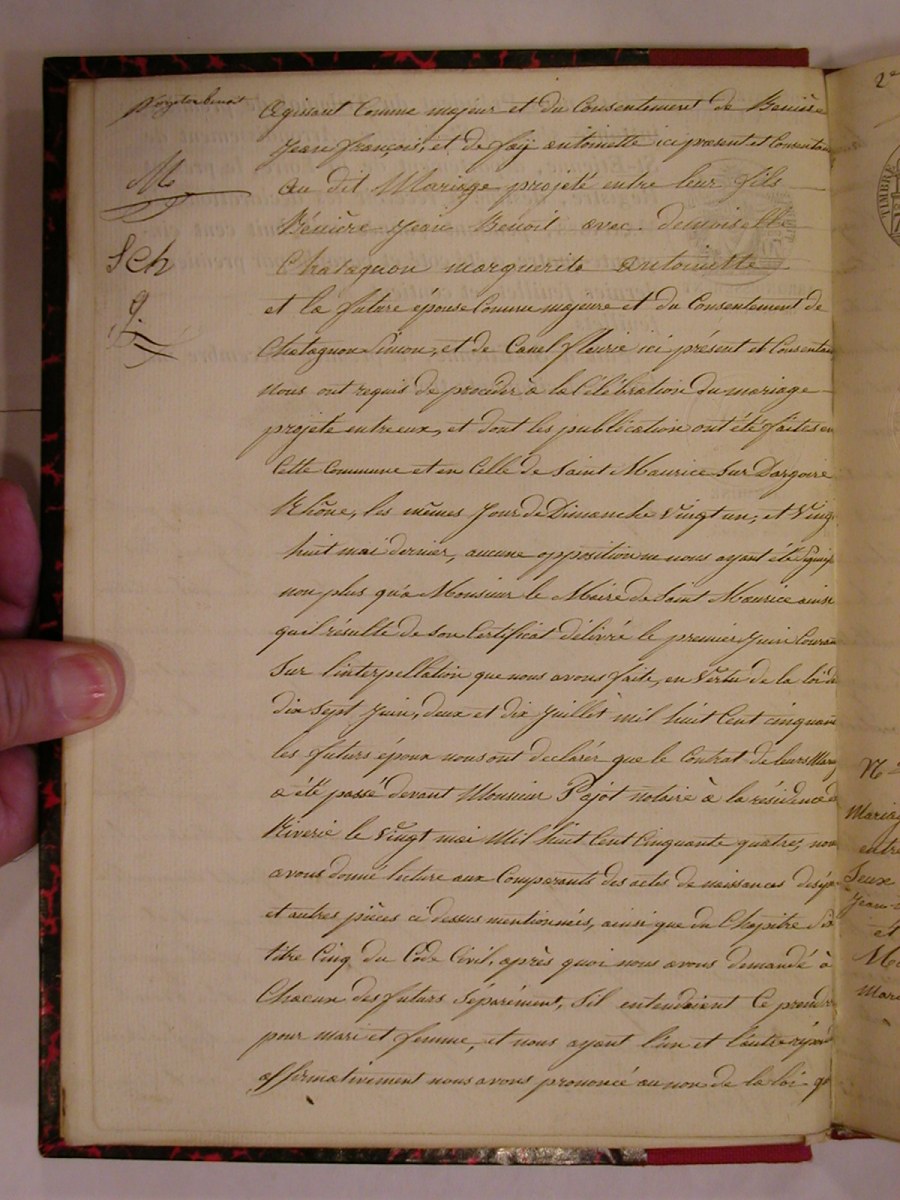 M
Sch
agissant Comme majeur et du Consentement de Benière
Jean François, et de Faÿ antoinette ici present et Consentan
au dit Mariage projeté entre leur fils
Bénière Jean Bénoit avec demoiselle
Chatagnon marguerite antoinette
et la future épouse Comme majeure et du Consentement de
Chatagnon Simon, et de Canel fleurie ici présent et Consentan
Nous ont requis de procéder à la Célébration du mariage
projeté entre eux, et dont les publication ont été faites en
Cette Commune et en Celle de Saint Maurice Sur Dargoire
Rhône, les mêmes Jour de Dimanche Vingt un, et Ving
huit mai dernier, aucune opposition ne nous ayant été Signif
non plus qu'a Monsieur le Maire de Saint Maurice ainsi
qu'il résulte de son Certificat délivré le premier Juin Couran
Sur l'interpellation que nous avons faite, en Vertu de la loi d
dix Sept Juin, deux et dix Juillet mil huit Cent cinquan
les futurs époux nous ont declarér que le Contrat de leurs Maria
a été passé devant Monsieur Pajot notaire à la résidence d
Riverie le Vingt mai Mil huit Cent Cinquante quatre, nou
avons donné lecture aux Comparants des actes de naissances
et autres pièces ci dessus mentionnés, ainsi que du Chapitre Six
titre Cinq du Code Civil, après quoi nous avons demandé à
Chacun des futurs Séparément, S'il entendaient Ce prendr
pour mari et femme, et nous ayant l'un et l'autre répond
affirmativement nous avons prononcé au nom de la loi q
2e
TIMBRE
N
Mariag
entre
Seux
Jean
et
Mari